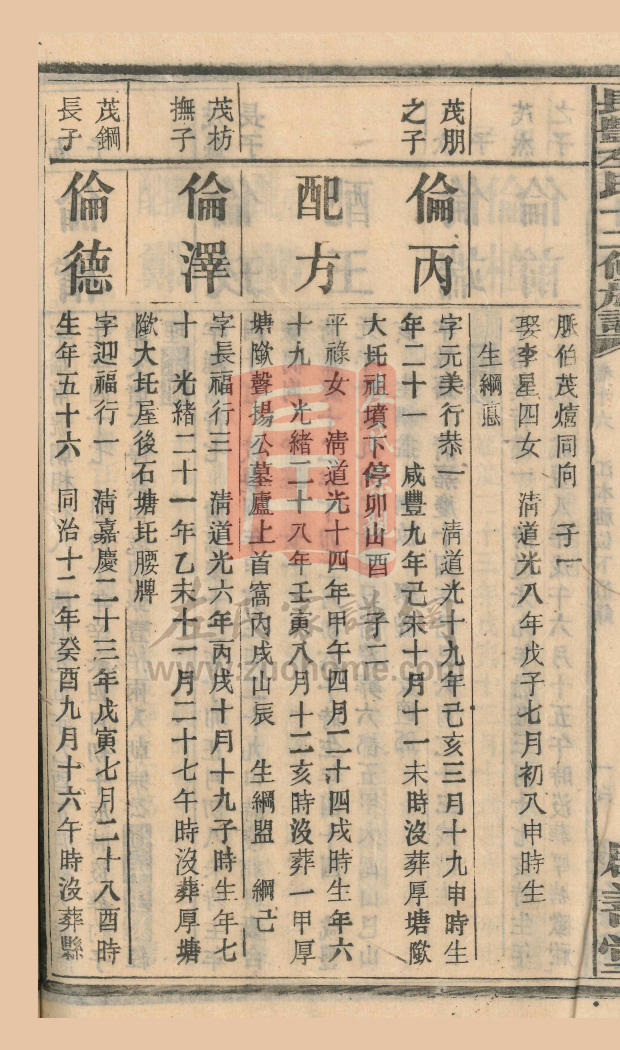 脈伯茂熺同向 子一
娶李星四女 清道光八年戊子七月初八申時生
生綱
茂朋之子
倫丙
字元美行恭一 清道光十九年己亥三月十九申時生
年二十一 咸豐九年己未十月十一未時沒葬厚塘歐
大圫祖墳下停卯山酉 子二
配方
平祿女 清道光十四年甲午四月二十四戌時生年六
十九 光緒二十八年壬寅八月十二亥時沒葬一甲厚
塘歐聲揚公墓廬上首窩內戌山辰 生綱盟 綱亡
茂枋撫子
倫澤
字長福行三 清道光六年丙戌十月十九子時生年七
十 光緒二十一年乙未十一月二十七午時沒葬厚塘
歐大圫屋後石塘圫腰牌
茂鋼長子
倫德
字迎福行一 清嘉慶二十三年戊寅七月二十八酉時
生年五十六 同治十二年癸酉九月十六午時沒葬縣
左氏家譜網
www.zuohome.com